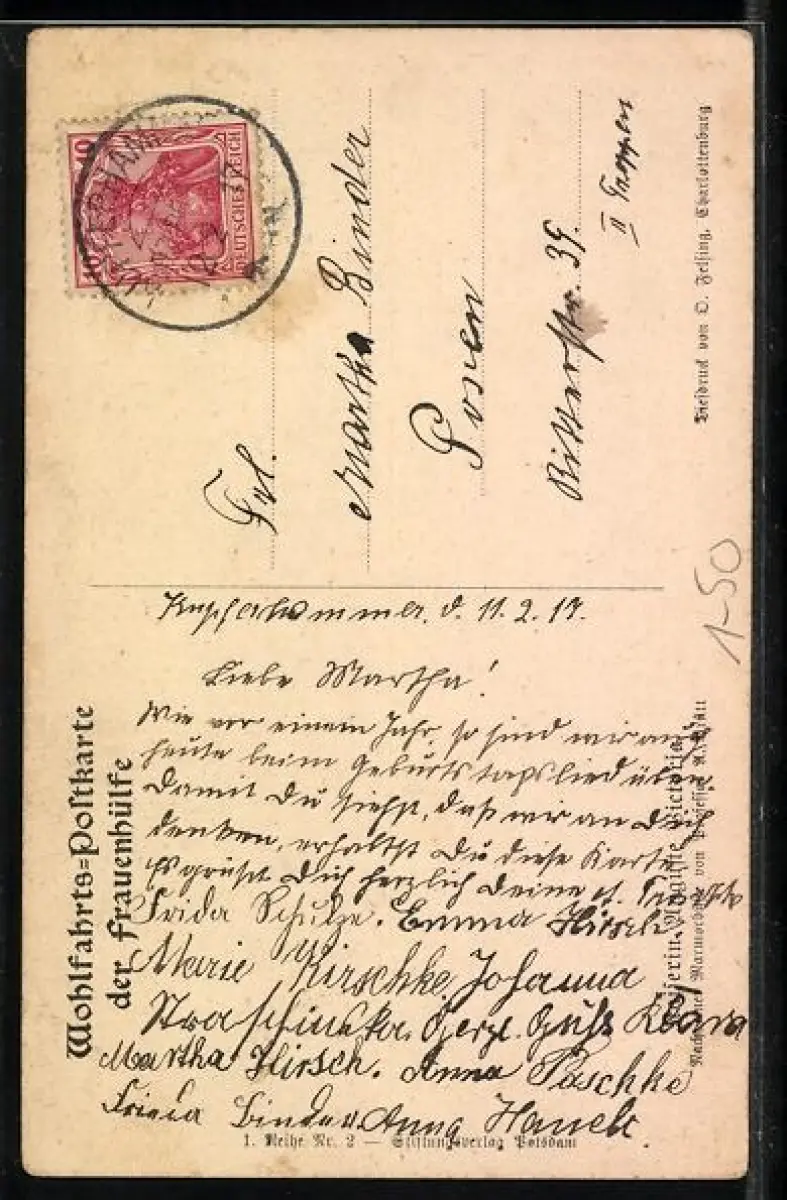 Wohlfahrts=Postkarte
der Frauenhülfe
DEUTSCHES REICH
10
10
Frl.
Martha Binder
Posen
Ritterstr. 39.
II Treppen
Tiefdruck von O. Felsing, Charlottenburg
1-50
Kupferhammer, d. 11.2.17.
Liebe Martha!
Wie vor einem Jahr, so sind wir auch
heute beim Geburtstagslied üben
Damit Du siehst, daß wir an Dich
denken, erhältst Du diese Karte
Es grüßt Dich herzlich Deine
Frida Schulze. Emma Hirsch
Marie Kirschke, Johanna
Straschinska. Herzl. Gruß Klara
Martha Hirsch. Anna Paschke
Frieda Binder. Anna Hanelt.
Kaiserin Auguste Victoria
1. Reihe Nr. 2 — Stiftungsverlag Potsdam